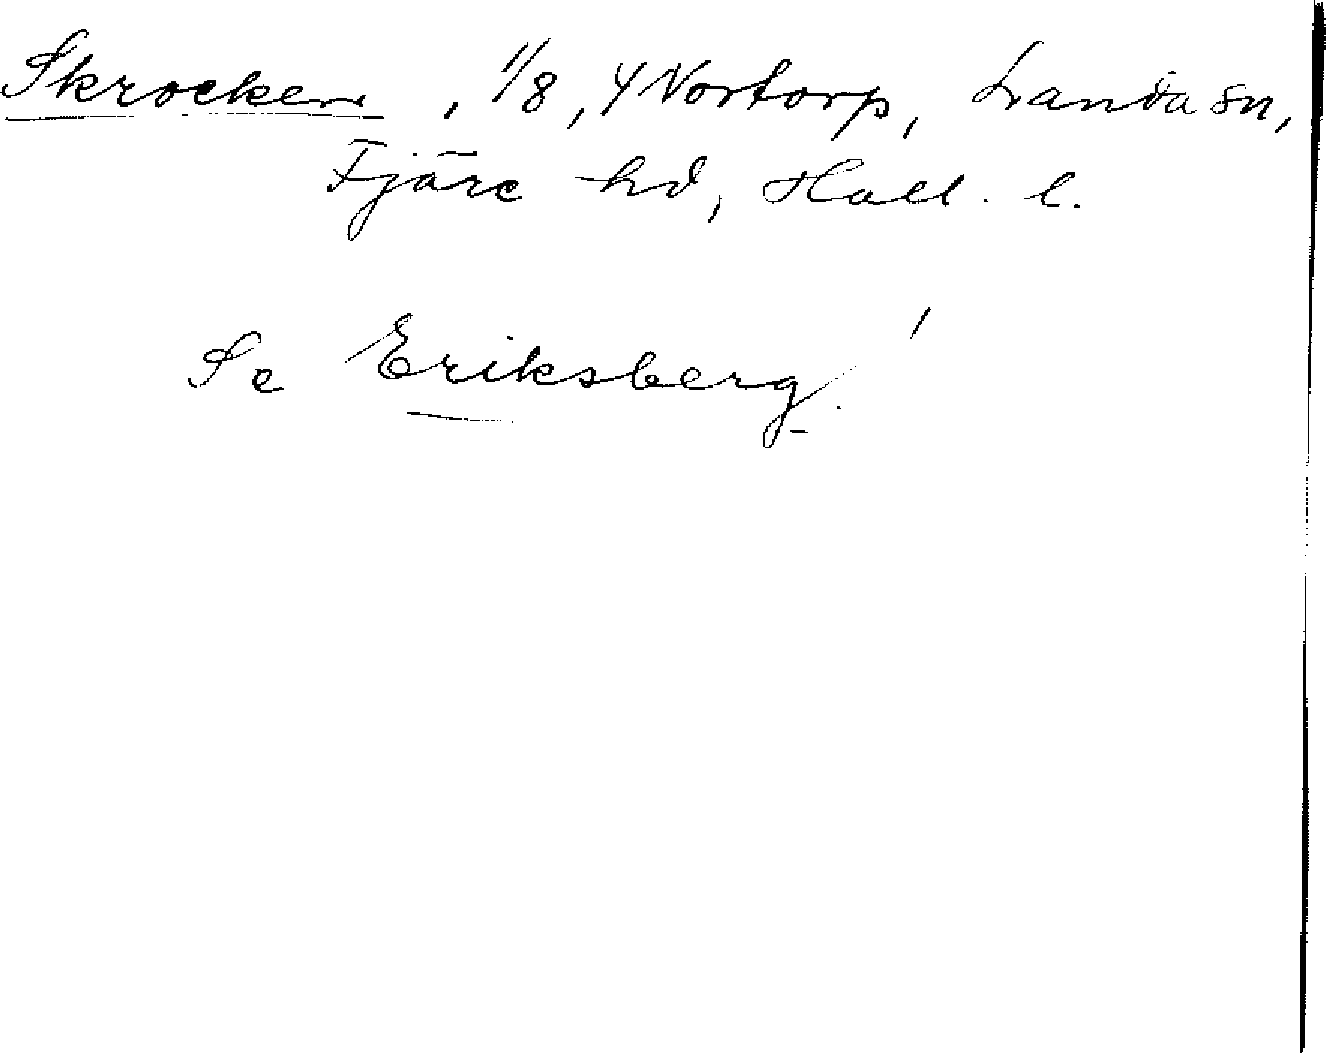 Skrocken, 1/8, 4 Nortorp, Landa sn,
Fjäre hd, Hall. l.
Se Eriksberg!